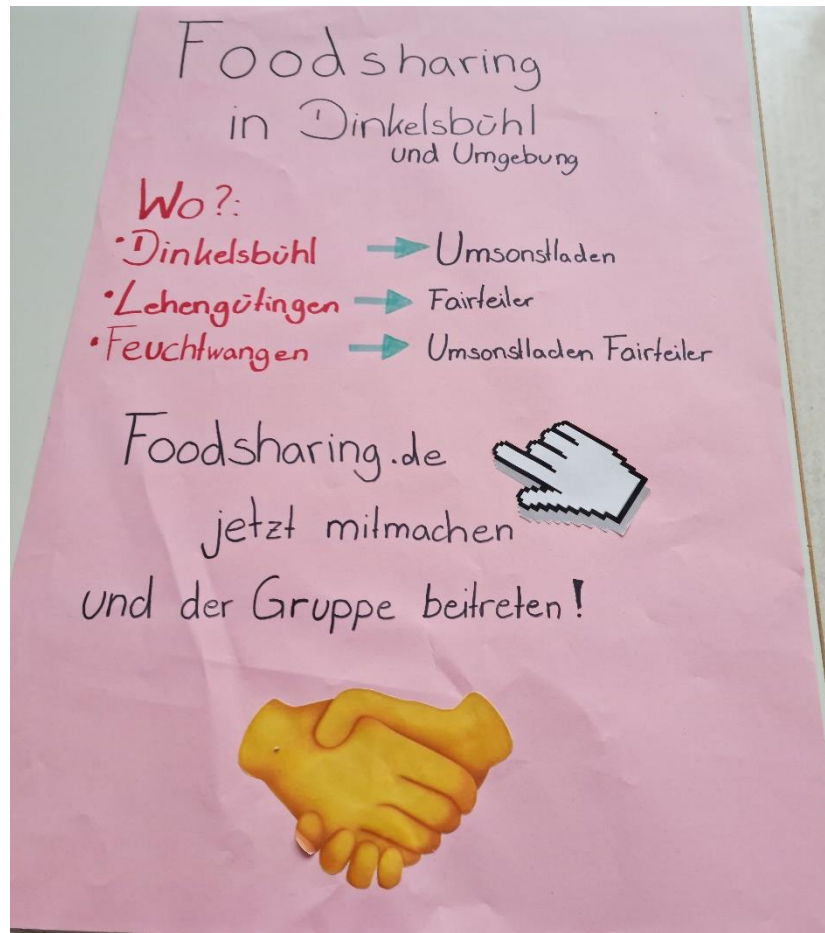 Foodsharing
in Dinkelsbühl
und Umgebung
Wo?:
• Dinkelsbühl → Umsonstladen
• Lehengütingen → Fairteiler
• Feuchtwangen → Umsonstladen Fairteiler
Foodsharing.de
jetzt mitmachen
und der Gruppe beitreten!